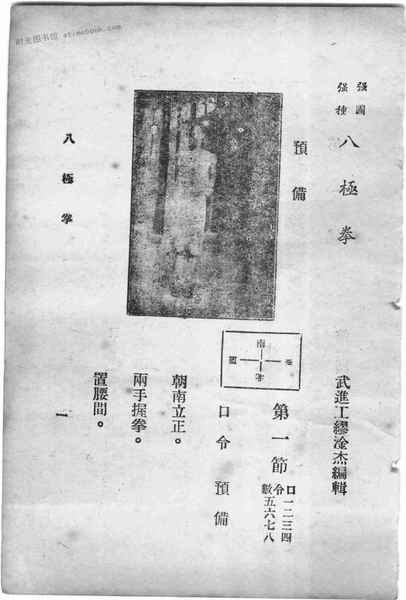 时光图书馆 atimebook.com
强國
强種
八極拳
武進工繆淦杰編輯
預備
南
北
第一節
口令
數
一二三四
五六七八
口令 預備
朝南立正。
兩手握拳。
置腰間。
八極拳
一